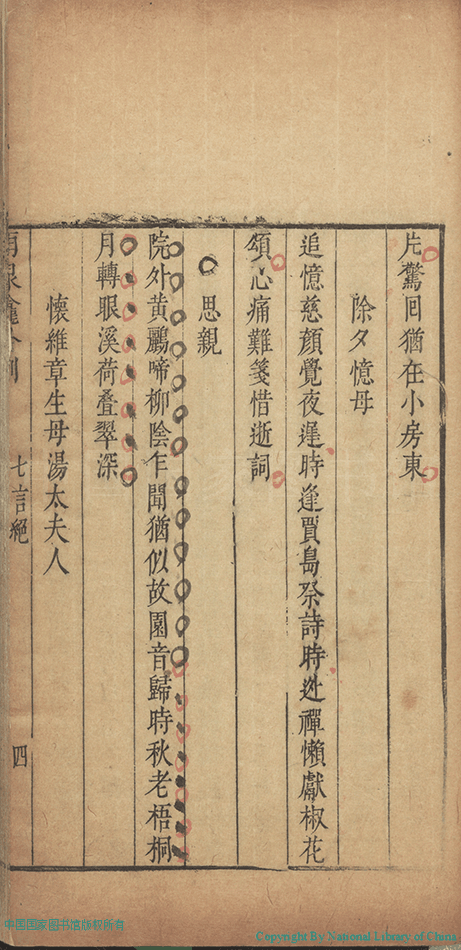 片驚回猶在小房東
除夕憶母
追憶慈顏覺夜遲時逢賈島祭詩時近禪懶獻椒花
頌心痛難箋惜逝詞
思親
院外黃鸝啼柳陰乍聞猶似故園音歸時秋老梧桐
月轉眼溪荷叠翠深
懷維章生母湯太夫人
七言絕
四
中国国家图书馆版权所有
Copyright By National Library of China